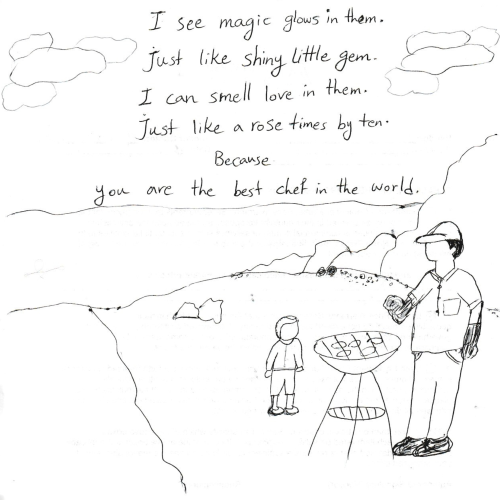 I see magic glows in them.
Just like shiny little gem.
I can smell love in them.
Just like a rose times by ten.
Because
you are the best chef in the world.